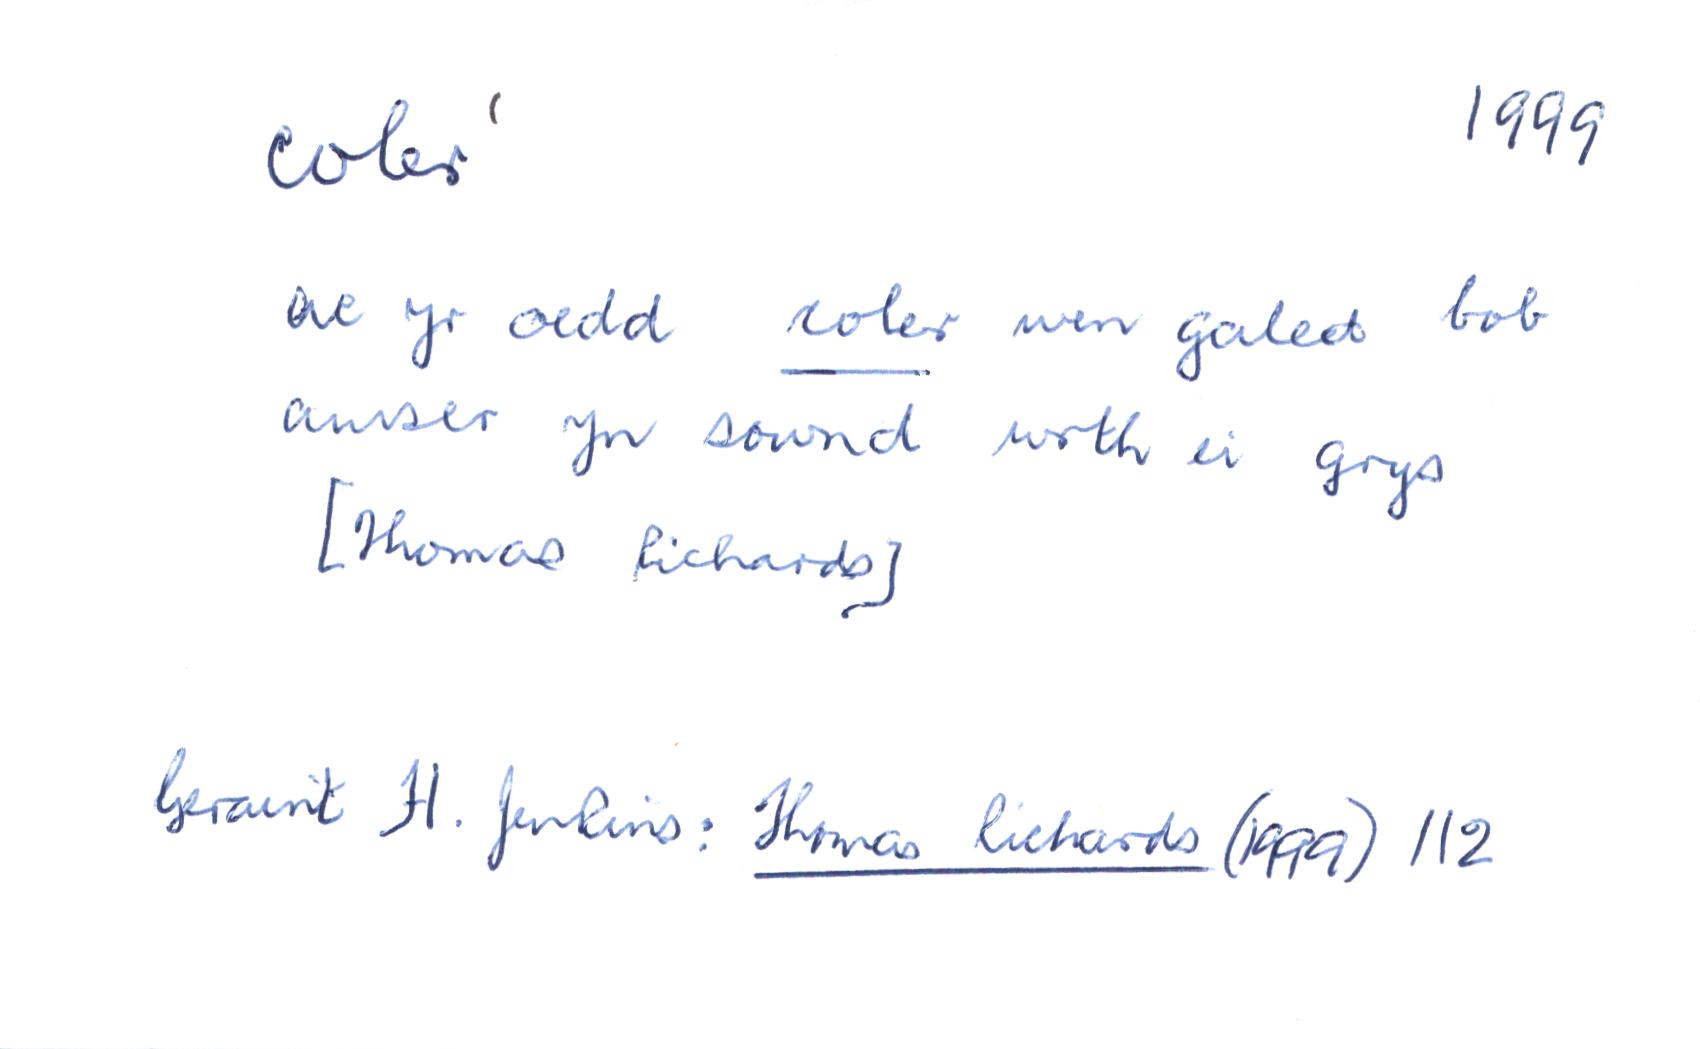 coler¹ 1999
ac yr oedd coler wen galed bob
amser yn sownd wrth ei grys
[Thomas Richards]
Geraint H. Jenkins: Thomas Richards (1999) 112